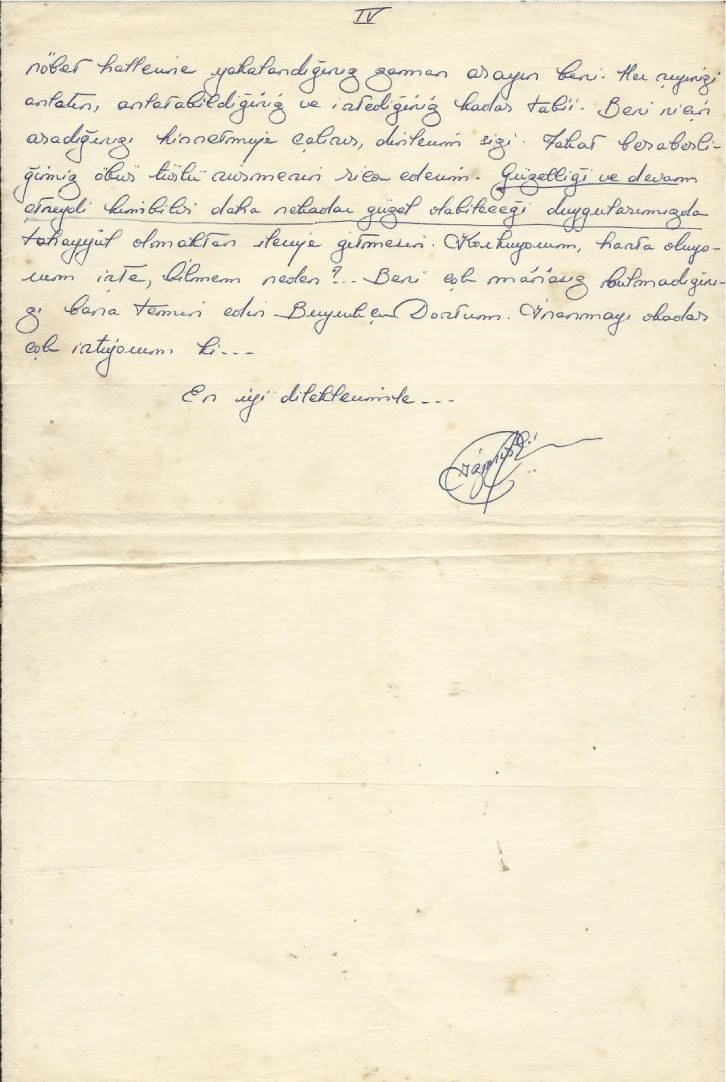 IV
nöbet hallerine yakalandığınız zaman arayın beni. Her şeyinizi
anlatın, anlatabildiğiniz ve istediğiniz kadar tabii. Beni niçin
aradığınızı hissetmeye çalışır, dinlerim sizi. Fakat beraberli-
ğimiz öbür türlü olmasın rica ederim. Güzelliği ve devam
etseydi kimbilir daha nekadar güzel olabileceği duygularımızda
tahayyül olmaktan ileriye gitmesin. Korkuyorum, hasta oluyo-
rum işte, bilmem neden?.. Beni çok mânâsız bulmadığını-
zı bana temin edin Dostum. İnanmayı okadar
çok istiyorum ki...
En iyi dileklerimle...